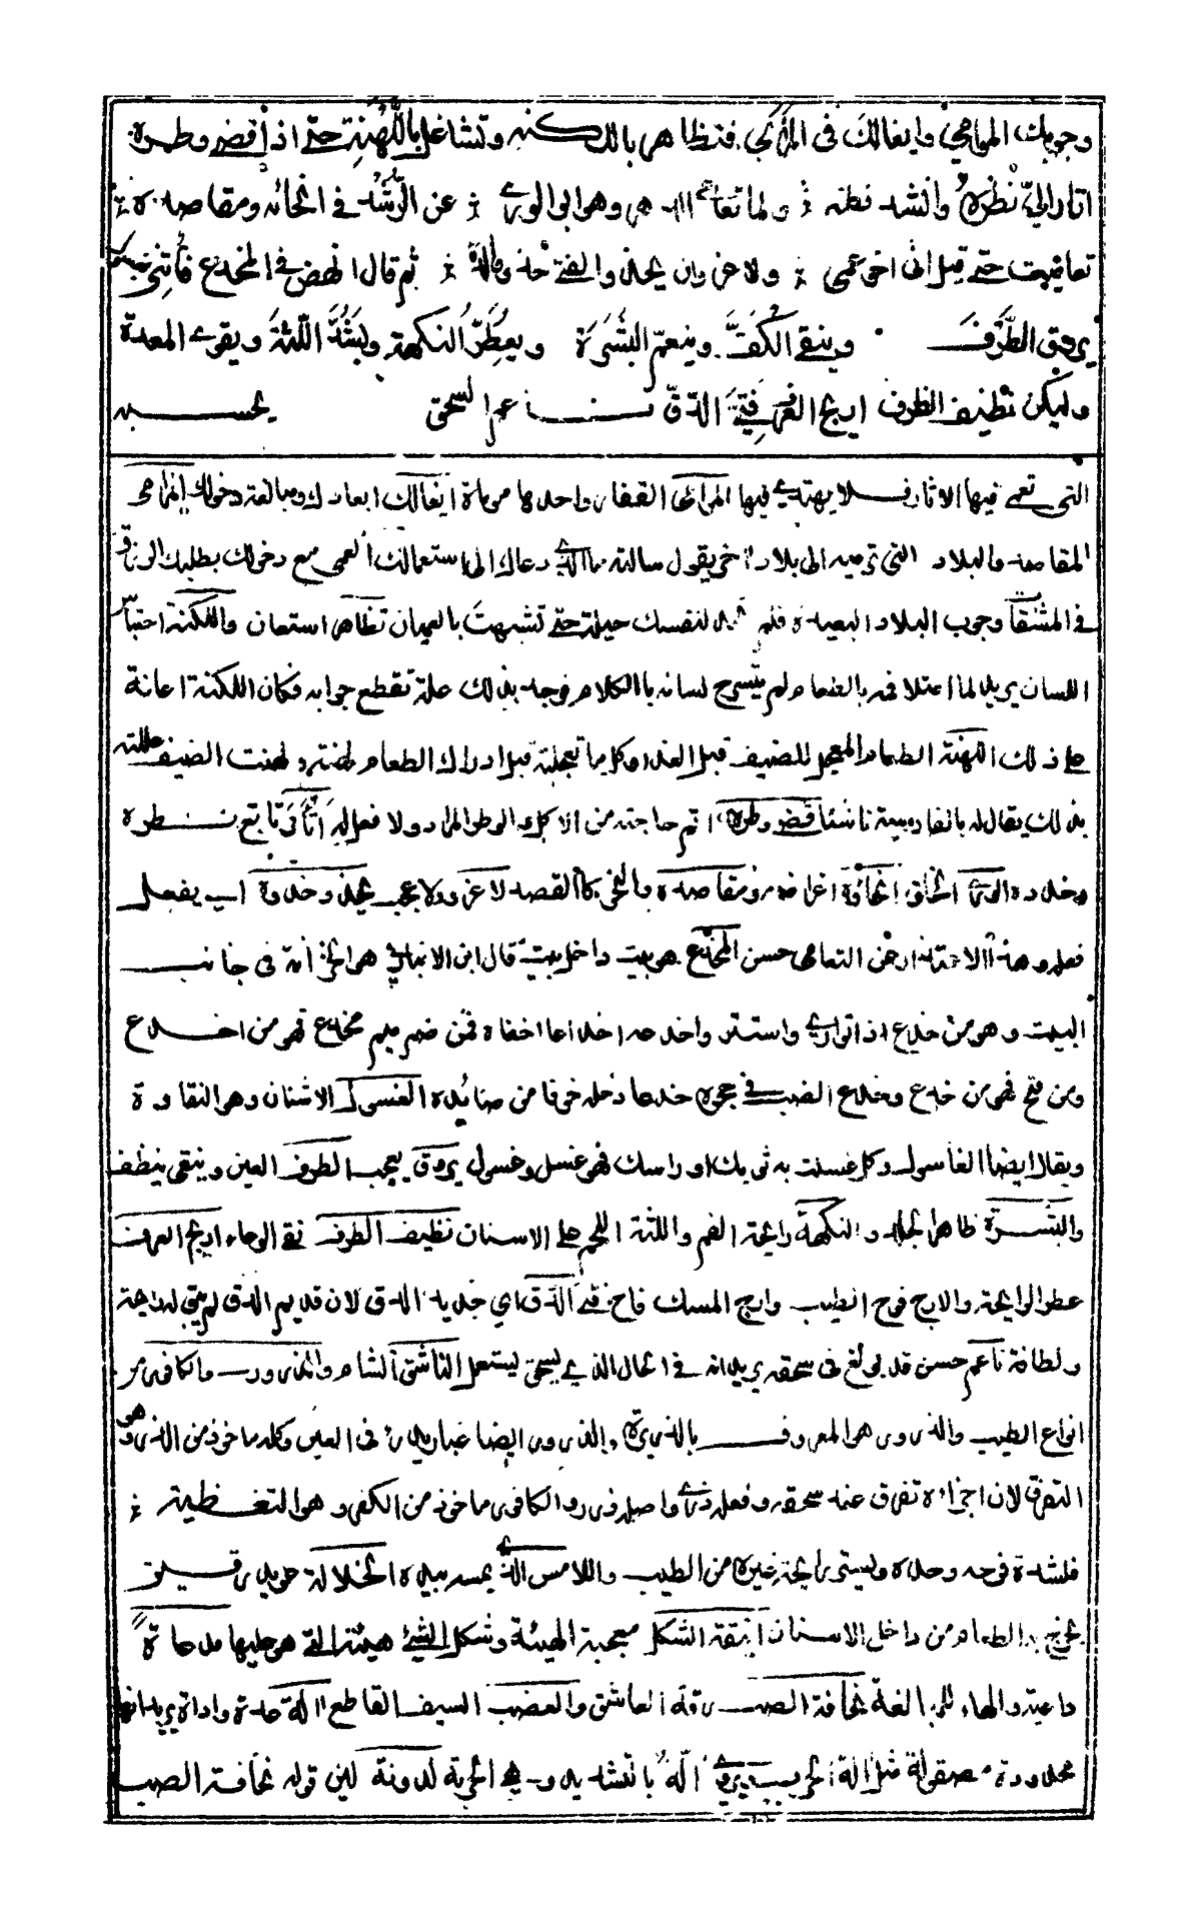 وجوبك الموامي وإيغالك في المرامي فتظاهر باللكنه وتشاغل باللُّهنة حتى اذا قضى وطره
اتار إليّ نظره وانشد ولما تعامى الدهر وهو ابو الورى عن الرشد في انحائه ومقاصده
تعاميت حتى قيل اني اخو عمى ولا غرو ان يحذو الفتى حذو والده ثم قال انهض في المخدع فأتني بغسول
يروق الطَّرف وينقي الكف وينعم البشرة ويعطر النكهة ويشد اللثة ويقوي المعدة
وليكن نظيف الظرف اريج العرف فتيَّ الدق ناعم السحق يحسبه
التي تعمى فيها الاثار فلا يهتدى فيها المرامي القفار واحدها مرماة ايغالك ابعادك ومبالغة دخولك المرامي
المقاصد والبلاد التي ترميه الى بلاد اخر يقول سالته ما الذي دعاك الى استعمالك العمى مع دخولك بطلبك الرزق
في وجوب البلاد البعيدة فلم لنفسك حيلة حتى تشبهت بالعميان تظاهر استعان واللكنة احتباس
اللسان يريد لما امتلا فمه بالطعام لم يتسرح لسانه بالكلام فوجد بذلك علة تقطع جوابه فكان اللكنة اعانة
على ذلك اللهنة الطعام المعجل للضيف قبل الغدا وكل ما تعجلته قبل ادراك الطعام لهنة ولهنت الضيف عللته
بذلك يقال له بالفارسية ناشتا قضى وطره اتم حاجته من الاكل والوطر المراد ولا فعل له أتأر تابع نظره
وحدده الورى الخلق انحائه اغراضه ومقاصده والنحو كالقصد لا غرو ولا عجب يحذو حذوه اي يفعل
فعله وهذا الاعتذار من التعامي حسن المخدع هو بيت داخل بيت قال ابن الانباري هو الخزانة في جانب
البيت وهو من خدع اذا توارى واستتر واخدعه اخداعا اخفاه فمن ضم ميم مخدع فهو من اخدع
ومن فتح فهو من خدع وخدع الضب في جحره خدعا دخله خوفا من صائده الغسول الاشنان وهو النقاوة
ويقال ايضا الغاسول وكل غسلت به ثوبك او راسك فهو غسل وغسول يروق يعجب الطرف العين وينقي ينظف
والبشرة ظاهر الجلد والنكهة رايحة الفم واللثة اللحم على الاسنان نظيف الظرف نقي الوعاء اريج العرف
عطر الرايحة والارج فوح الطيب وارج المسك فاح فتي الدق اي جديد الدق لان قديم الدق لم يبق له رايحة
ولطافة ناعم حسن قد بولغ في سحقه يريد انه في الحال الذي يسحق ليستعمل الناشق الشام والذرور والكافور من
انواع الطيب والذرور هو المعروف بالذريرة والذرور ايضا غبار يذر في العين وكله ماخوذ من الذر وهو
التفرق لان اجزائه تفرق عند سحقه وفعله ذرى واصله ذرر والكافور ماخوذ من الكفر وهو التغطية
فلشدة فوحه وحده ويستر رايحة غيره من الطيب واللامس الذي يمسه بيده الخلالة عويد رقيق
يخرج به الطعام من داخل الاسنان انيقة الشكل معجبة الهيئة وشكل الشيء هيئته التي هو عليها مدعاة
داعية والهاء للمبالغة نحافة الصب رقة العاشق والعضب السيف القاطع آلة حدة واداة يريد انها
محدودة مصقولة مثل الة الحرب ويروى الّة بالتشديد وهي الحربة لدونة لين قوله نحافة الصب